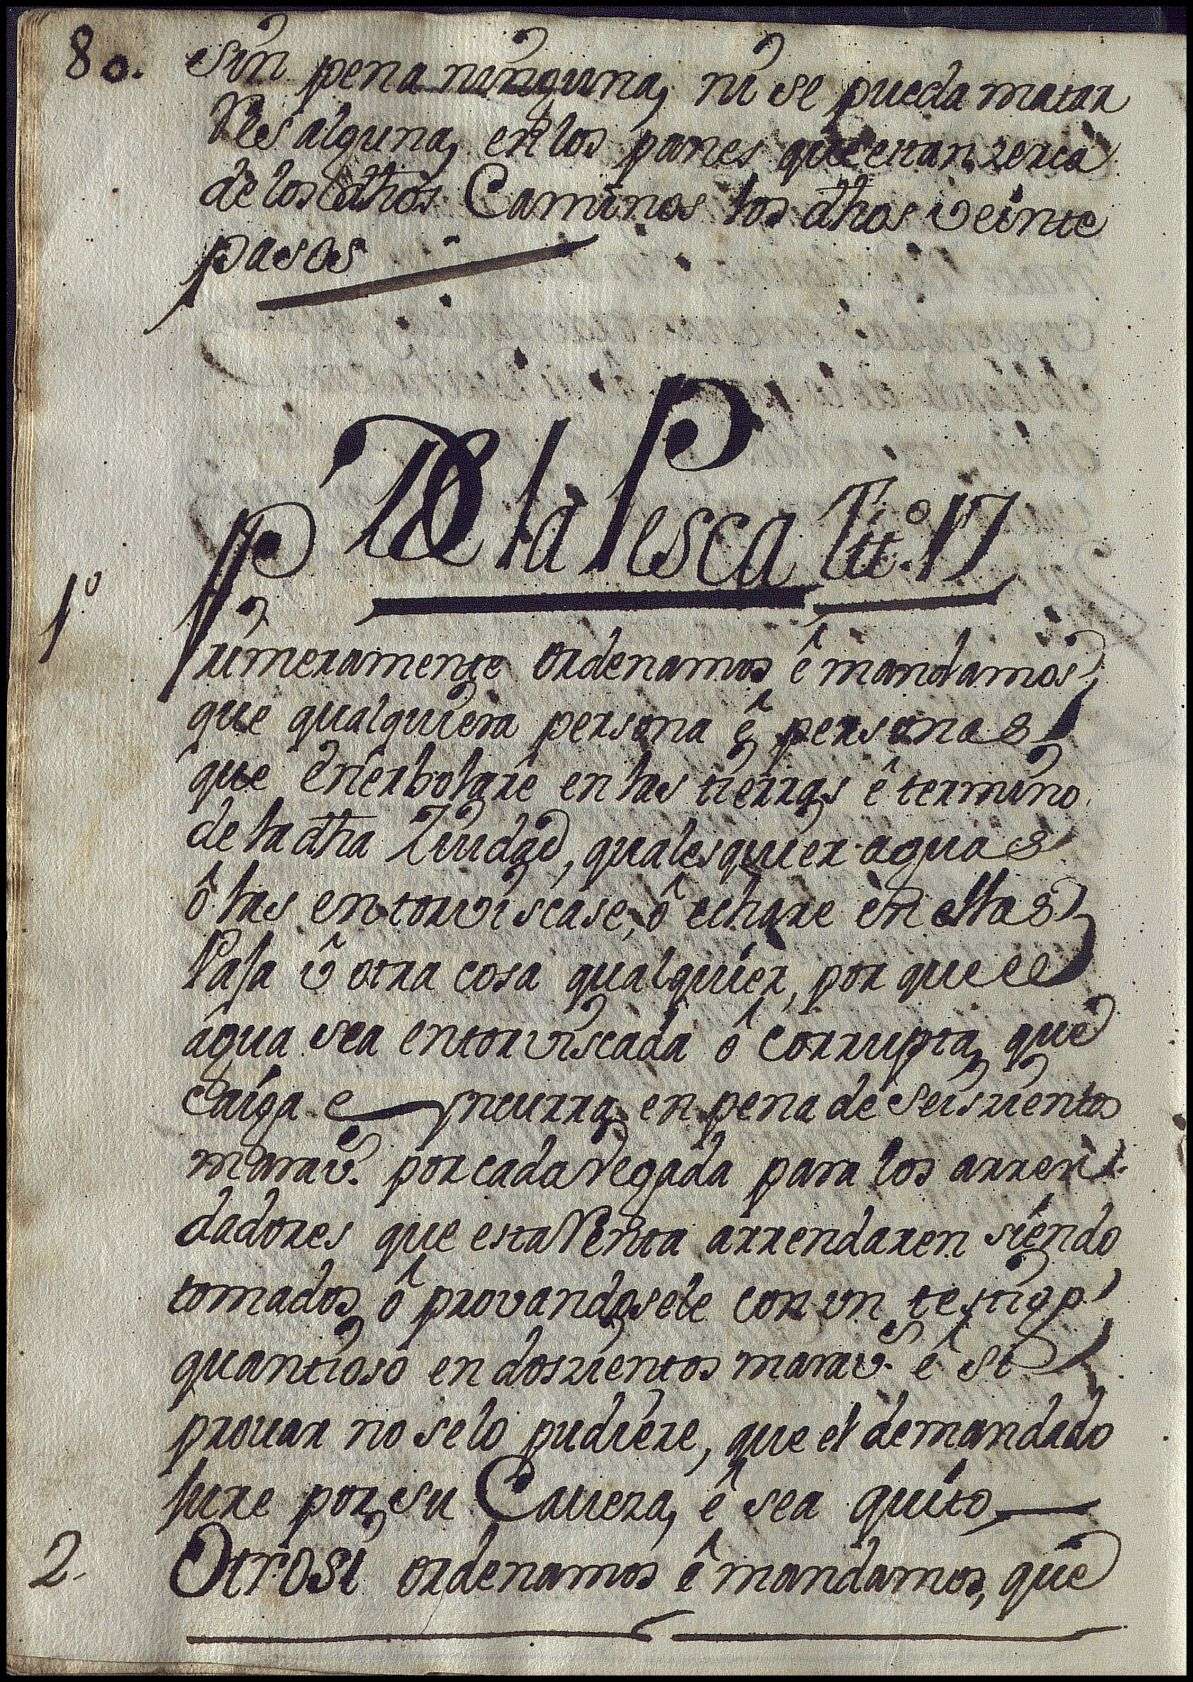 80.
sin pena ninguna, ni se pueda matar
Res alguna, en los panes que estan zerca
de los dhos Caminos los dhos veinte
pasos
De la Pesca Titº. 17
1º
Primeramente ordenamos ê mandamos
que qualquiera persona ô personas
que enerbolare en las tierras ê termino
de la dha Ziudad, qualesquier aguas
ô las entorviscase, ô echare en ellas
Casa û otra cosa qualquier, por que el
agua sea entorviscada ô corrupta, que
caiga e yncurra, en pena de seiszientos
marav. por cada vegada para los arren-
dadores que esta Renta arrendaren siendo
tomados, ô provandosele con un testigo
quantioso en doszientos marav.s ê si
provar no se lo pudiere, que el demandado
jure por su Caveza, ê sea quito
2. Otrosi ordenamos ê mandamos, que